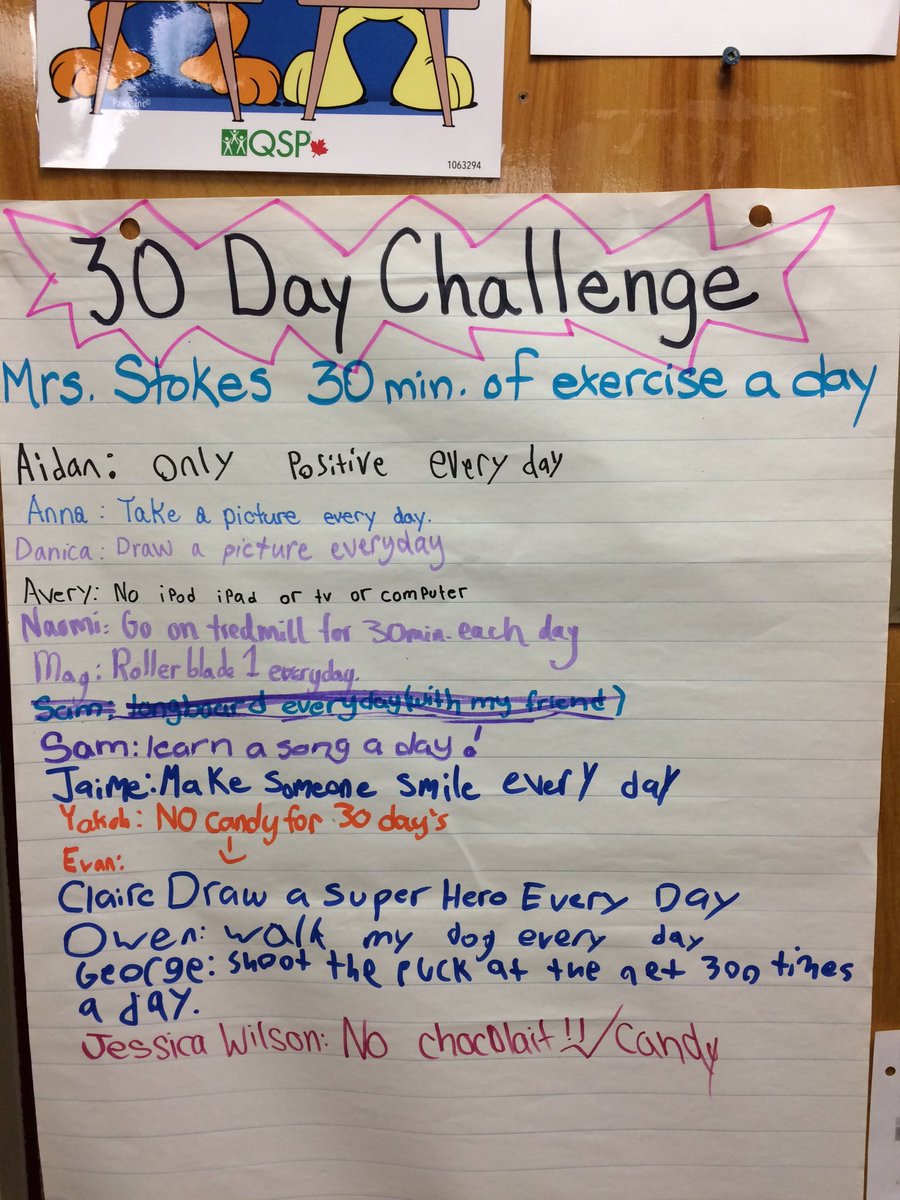 Paws, Inc©
QSP
1063294
30 Day Challenge
Mrs. Stokes 30 min. of exercise a day
Aidan: only positive every day
Anna: Take a picture every day.
Danica: Draw a picture everyday
Avery: No ipod ipad or tv or computer
Naomi: Go on tredmill for 30min. each day
Mag: Roller blade 1 everyday.
Sam: longboard everyday (with my friend)
Sam: learn a song a day!
Jaime: Make someone smile every day
Yakob: NO candy for 30 day's
Evan:
Claire Draw a super Hero Every Day
Owen: walk my dog every day
George: shoot the puck at the net 300 times
a day.
Jessica Wilson: No chocolait!!/Candy